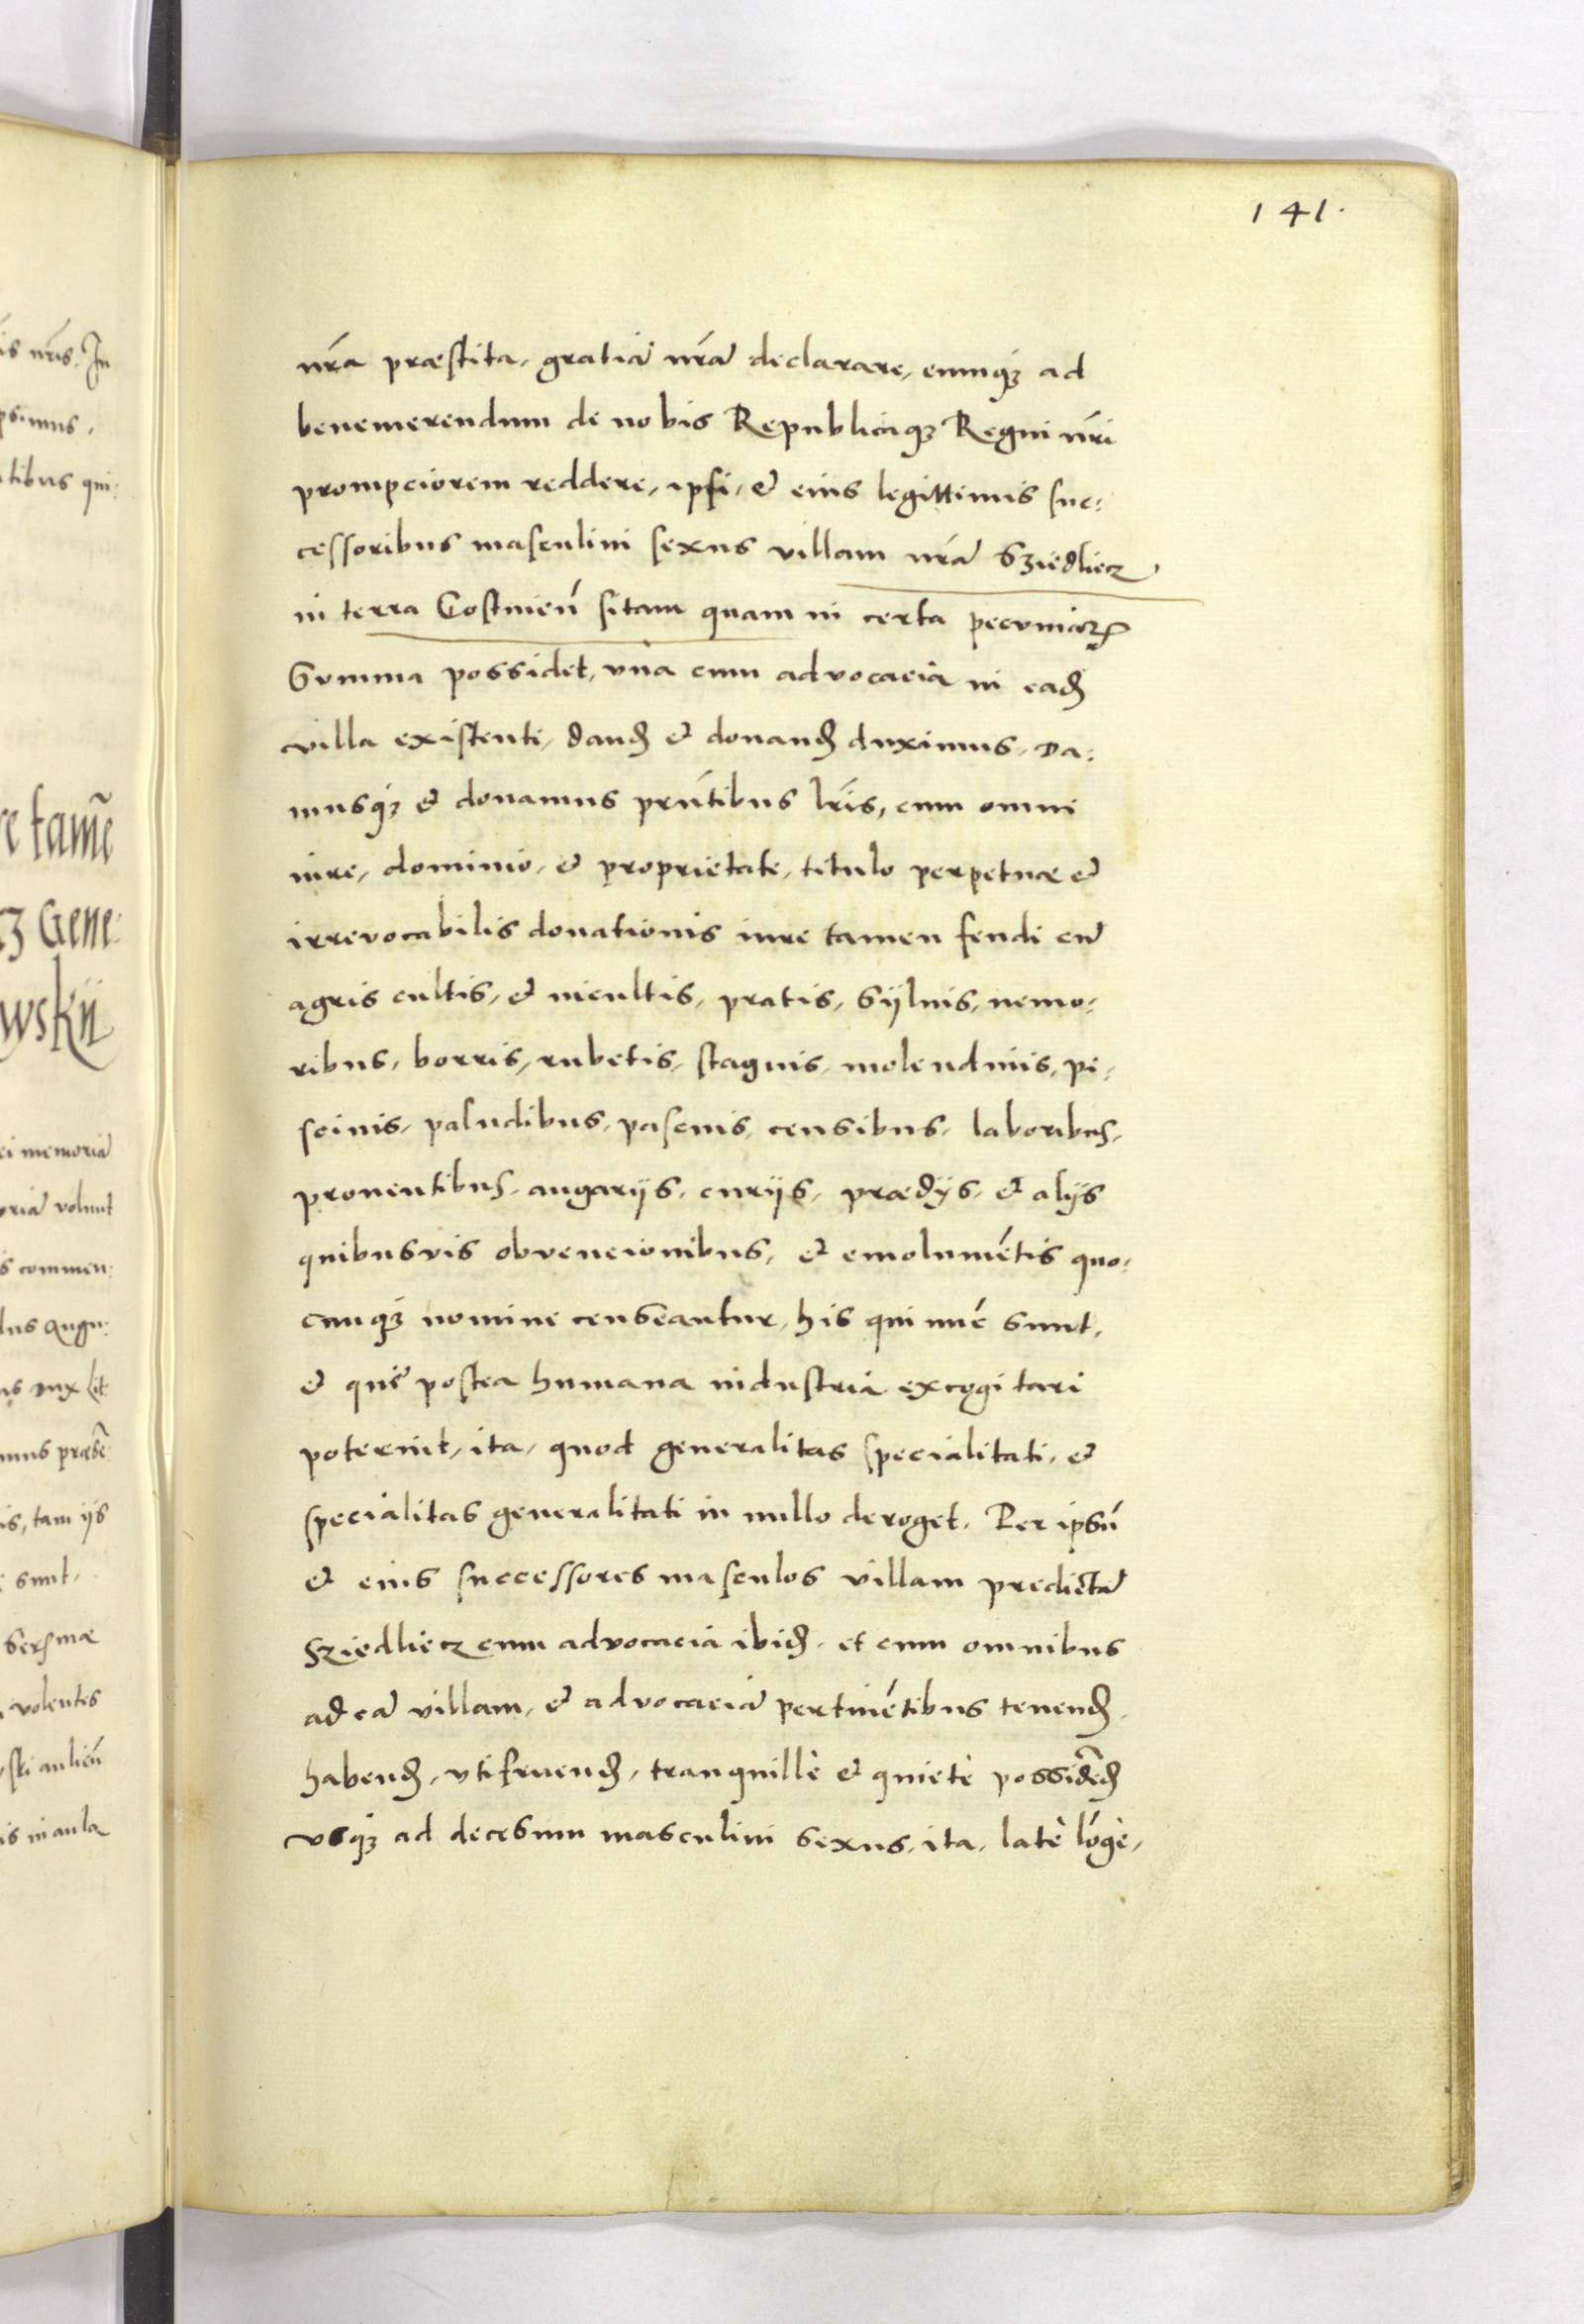 141.
nr̃a præstita, gratiã nr̃ã declarare, eumq₃ ad
benemerendum de nobis Republicaq₃ Regni nr̃i
prompciorem reddere, ipsi, & eius legittimis suc:
cessoribus masculini sexus villam nr̃ã Sziedliecz
in terra Costnieñ sitam quam in certa pecuniaꝝ
Summa possidet, vna cum advocacia in eadẽ
villa existenti, dandã & donandã duximus, Da:
musq₃ & donamus pñtibus lr̃is, cum omni
iure, dominio, & proprietate, titulo perpetuæ &
irrevocabilis donationis iure tamen feudi cũ
agris cultis, & incultis, pratis, Sylvis, nemo:
ribus, borris, rubetis, stagnis, molendinis, pi:
scinis, paludibus, pascuis, censibus, laboribus,
prouentibus, angarijs, curijs, prædijs, & alijs
quibusvis obvencionibus, & emolumẽtis quo:
cumq₃ nomine censeantur, his qui nũc sunt,
& quę postea humana industria excogitari
poterint, ita, quod generalitas specialitati, &
specialitas generalitati in nullo deroget. Per ipsũ
& eius successores masculos villam predictã
Sziedliecz cum advocacia ibidẽ, et cum omnibus
ad eã villam, & advocaciã pertinẽtibus tenendã,
habendã, vtifruendã, tranquillè & quietè possidẽdã
vsq₃ ad decesum masculini sexus, ita, latè lõgè,
is nr̃is. In
psimus,
tibus qui:
re tamẽ
Gene:
wskii
ei memoriã
oriã volunt
s commen:
dus Augu:
us Dux Lit:
mus præsẽ
is, tam ijs
sunt,
volentes
is in aula